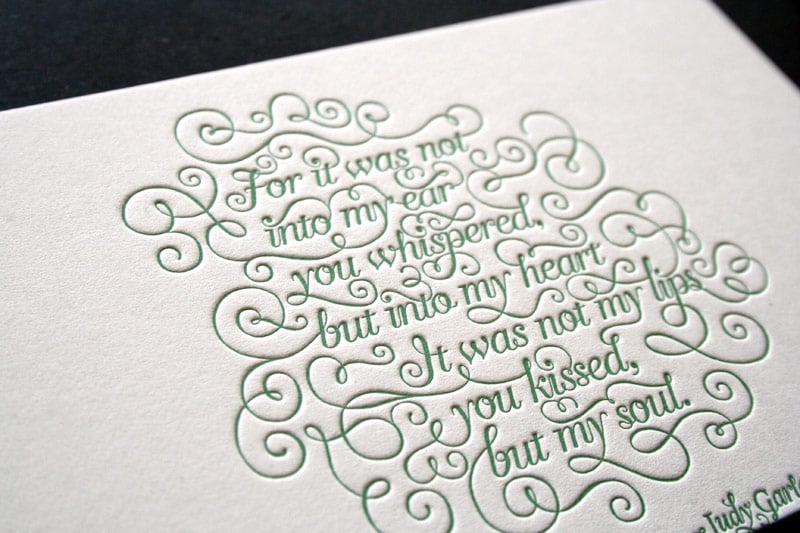 For it was not
into my ear
you whispered,
but into my heart
It was not my lips
you kissed,
but my soul.
Judy